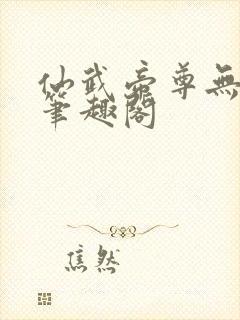 仙武帝尊無
筆趣閣
焦然